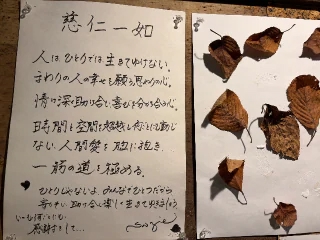 慈仁一如
人は、ひとりでは生きてゆけない。
まわりの人の幸せを願う思いやりの心。
情け深く助け合い喜びを分かち合う心。
時間と空間を超越し何ごとにも動じ
ない人間愛を胸に抱き
一筋の道を極める。
ひとりじゃないよ、みんなでひとつだから
助け合い楽しく生きてゆきましょう
いつも何ごとにも
感謝をして…